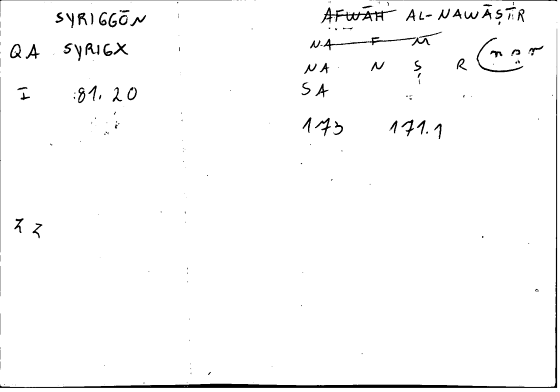 SYRIGGŌN
QA SYRIGX
I 81.20
ZZ
AFWĀH AL-NAWĀṢĪR
NA F M
NA N Ṣ R (nṣr
SA
173 171.1